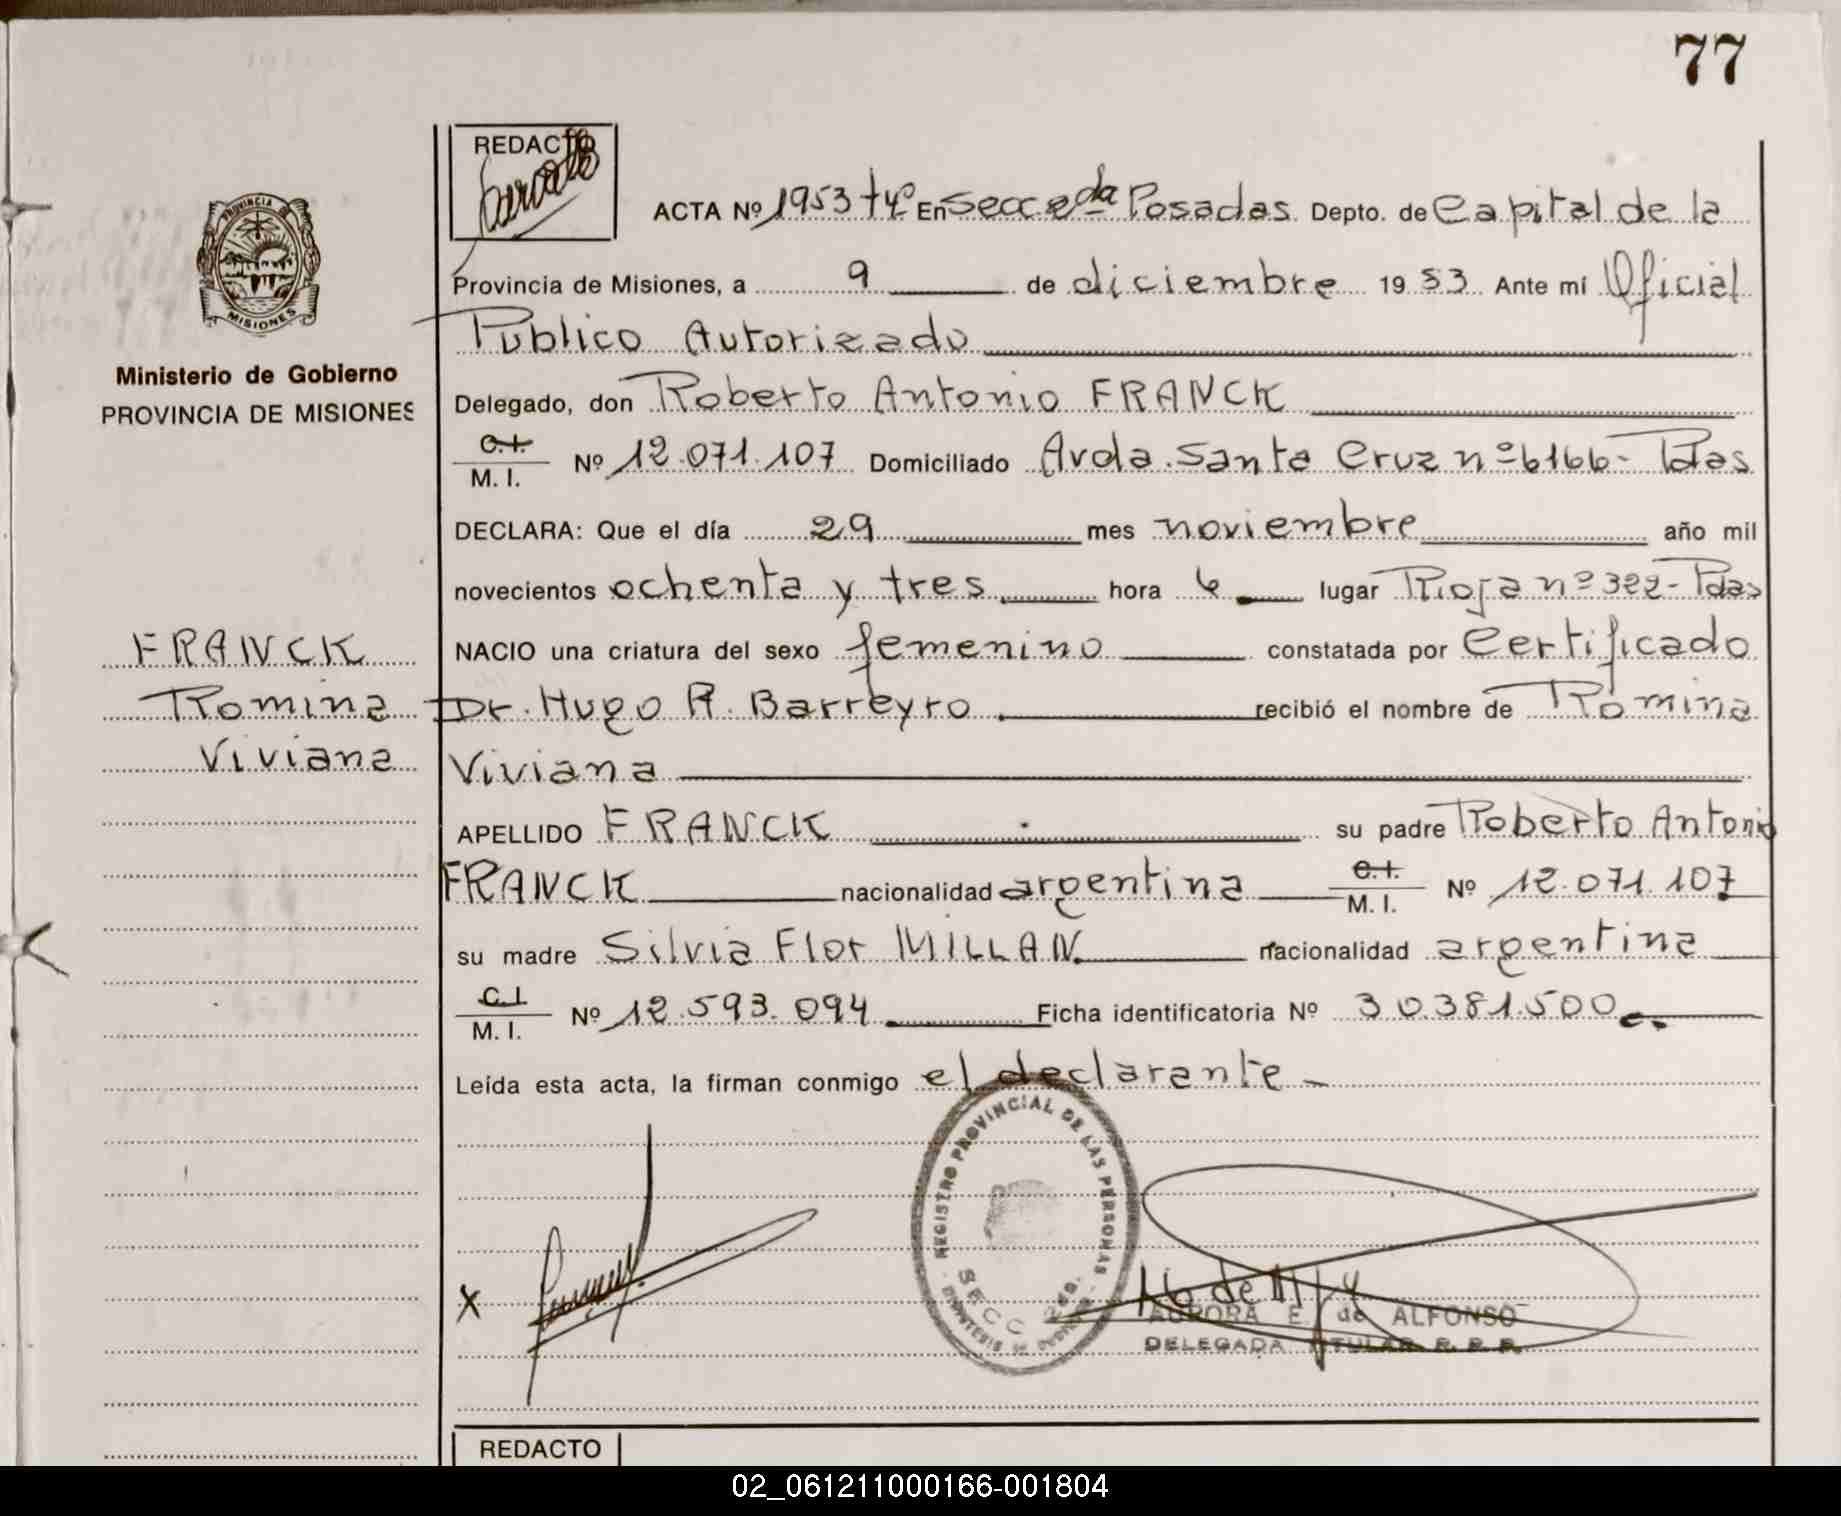 77
REDACTO
ACTA Nº 1953 tº 4º En Secc 2da Posadas Depto. de Capital de la
PROVINCIA
MISIONES
Provincia de Misiones, a 9 de diciembre 19 83 Ante mí Oficial
Público Autorizado
Ministerio de Gobierno
PROVINCIA DE MISIONES
Delegado, don Roberto Antonio FRANCK
C.I.
M. I. Nº 12.071.107 Domiciliado Avda. Santa Cruz nº 6166- Pdas
DECLARA: Que el día 29 mes noviembre año mil
novecientos ochenta y tres hora 6 lugar Rioja nº 322- Pdas
NACIO una criatura del sexo femenino constatada por Certificado
Dr. Hugo A. Barreyro recibió el nombre de Romina
Viviana
FRANCK
Romina
Viviana
APELLIDO FRANCK su padre Roberto Antonio
FRANCK nacionalidad argentina C.I. M. I. Nº 12.071.107
su madre Silvia Flor MILLAN nacionalidad argentina
C.I.
M. I. Nº 12.593.094 Ficha identificatoria Nº 30381.500
Leída esta acta, la firman conmigo el declarante
REGISTRO PROVINCIAL DE LAS PERSONAS
SECC 2da.
X
AURORA E. de ALFONSO
DELEGADA TITULAR R. P. P.
REDACTO
02_061211000166-001804